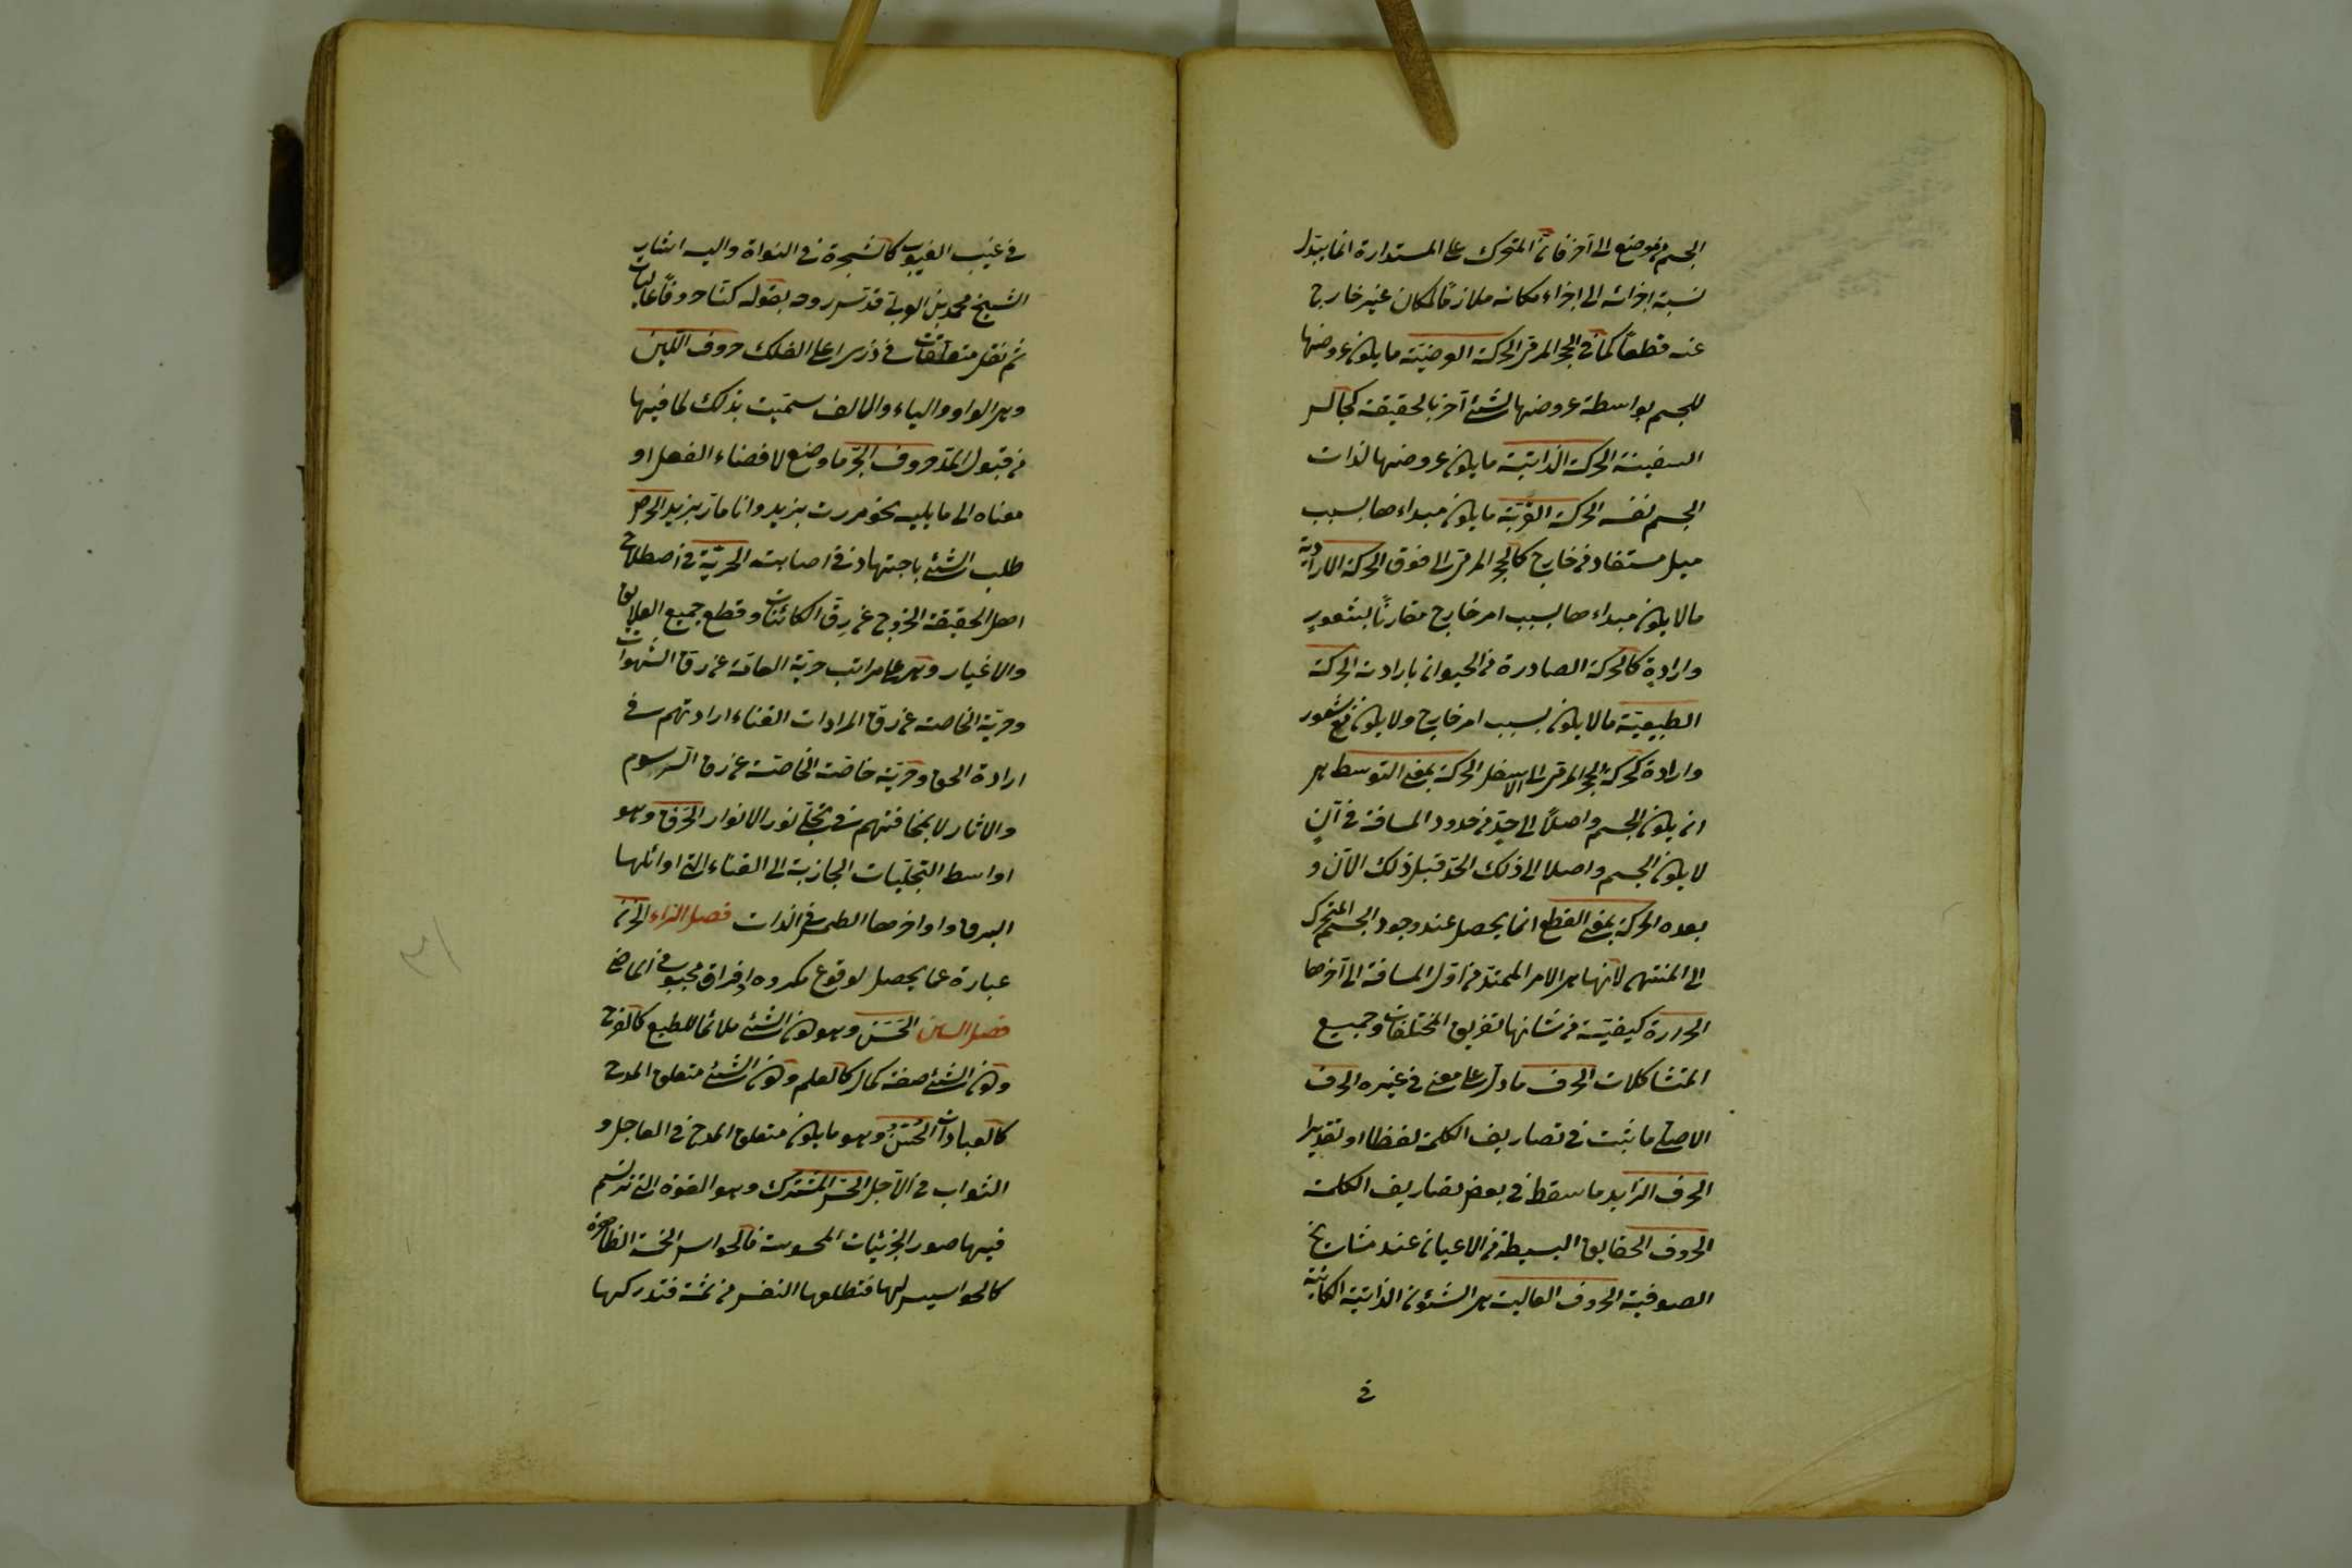 الجسم من موضع الى آخر فانّ المتحرك على المستدارة انما يبتدل
نسبة اجزائه الى اجزاء مكانه ملازمًا لمكان غير خارج
عنه قطعًا كما في الحجر المرمى الحركة العرضيّة ما يكون عروضها
للجسم بواسطة عروضها لشئ آخر بالحقيقة كجالس
السفينة الحركة الذاتيّة ما يكون عروضها لذات
الجسم نفسه الحركة القسريّة ما يكون مبداءها بسبب
ميل مستفاد من خارج كالحجر المرمى الى فوق الحركة الارادية
مالا يكون مبداءها بسبب امر خارج مقارنًا بشعورٍ
وارادةٍ كالحركة الصادرة من الحيوان بارادته الحركة
الطبيعيّة مالا يكون بسبب امر خارج ولا يكون مع شعور
وارادة كحركة الحجر المرمى الى الاسفل الحركة بمعنى التوسط هى
ان يكون الجسم واصلًا الى حدٍّ من حدود المسافة في آنٍ
لا يكون الجسم واصلا الى ذلك الحدّ قبل ذلك الآن و
بعده الحركة بمعنى القطع انما يحصل عند وجود الجسم المتحرك
الى المنتهى لانّها هى الامر الممتدّ من اوّل المسافة الى آخرها
الحرارة كيفيّة من شانها تفريق المختلفات وجميع
المتشاكلات الحرف ما دلّ على معنى في غيره الحرف
الاصلى ما يثبت في تصاريف الكلمة لفظا او تقديرا
الحرف الزايد ما سقط في بعض تصاريف الكلمة
الحروف الحقايق البسيطة من الاعيان عند مشايخ
الصوفية الحروف العالية هى الشئون الذاتية الكائنة
في
في غيب الغيوب كالشجرة في النواة واليه اشار
الشيخ محمد بن العربى قدّس سره بقوله كنّا حروفًا عاليات
لم نقل متعلّقات في ذرى اعلى القلل حروف اللين
وهى الواو والياء والالف سمّيت بذلك لما فيها
من قبول المدّ حروف الجرّ ما وضع لافضاء الفعل او
معناه الى ما يليه نحو مررت بزيد وانا مارّ بزيد الحرص
طلب الشئ باجتهاد في اصابته الحريّة في اصطلاح
اهل الحقيقة الخروج عن رقّ الكائنات وقطع جميع العلايق
والاغيار وهى على مراتب حريّة العامّة عن رق الشهوات
وحريّة الخاصة عن رقّ المرادات لفناء ارادتهم في
ارادة الحق وحريّة خاصّة الخاصّة عن رق الرسوم
والاثار لانمحاقهم في تجلّى نور الانوار الحرق وهو
اواسط التجلّيات الجاذبة الى الفناء التى اوائلها
البرق واواخرها الطمس في الذات فصل الزاء الحزن
عبارة عما يحصل لوقوع مكروه او فراق محبوب في الماضى
فصل السين الحَسَن وهو كون الشئ ملائما للطبع كالفرح
وكون الشئ صفة كمال كالعلم وكون الشئ متعلق المدح
كالعبادات الحُسْنُ وهو ما يكون متعلق المدح في العاجل و
الثواب في الآجل الحسّ المشترك وهو القوة التى ترتسم
فيها صور الجزئيات المحسوسة فالحواس الخمسة الظاهرة
كالجواسيس لها فتطلعها النفس من ثمّة فتدركها